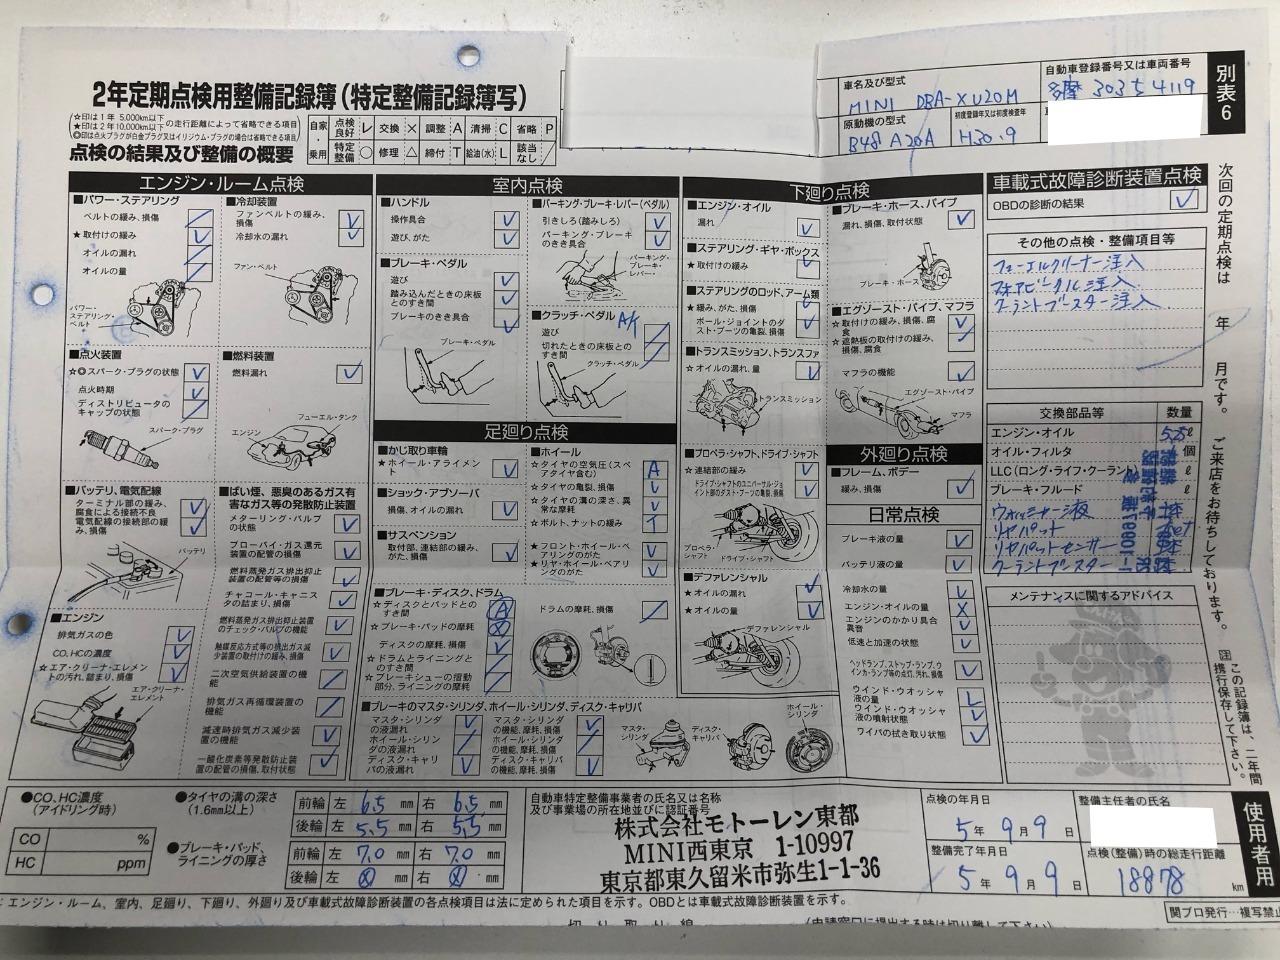 2年定期点検用整備記録簿(特定整備記録簿写)
☆印は1年 5,000km以下
★印は2年 10,000km以下 の走行距離によって省略できる項目
◎印は点火プラグが白金プラグ又はイリジウム・プラグの場合は省略できる項目
点検の結果及び整備の概要
自家・乗用
点検良好 レ 交換 × 調整 A 清掃 C 省略 P
特定整備 ○ 修理 △ 締付 T 給油(水) L 該当なし /
車名及び型式
MINI DBA-XU20M
自動車登録番号又は車両番号
多摩 303 す 4119
原動機の型式
B48A20A
初度登録年又は初度検査年
H30.9
別表6
エンジン・ルーム点検
■パワー・ステアリング
ベルトの緩み、損傷
★取付けの緩み
オイルの漏れ
オイルの量
パワー・ステアリング・ベルト
■冷却装置
ファンベルトの緩み、損傷
冷却水の漏れ
ファン・ベルト
■点火装置
☆◎スパーク・プラグの状態
点火時期
ディストリビュータのキャップの状態
スパーク・プラグ
■燃料装置
燃料漏れ
フューエル・タンク
エンジン
■バッテリ、電気配線
ターミナル部の緩み、腐食による接続不良
電気配線の接続部の緩み、損傷
バッテリ
■エンジン
排気ガスの色
CO、HCの濃度
☆エア・クリーナ・エレメントの汚れ、詰まり、損傷
エア・クリーナ・エレメント
■ばい煙、悪臭のあるガス有害なガス等の発散防止装置
メターリング・バルブの状態
ブローバイ・ガス還元装置の配管の損傷
燃料蒸発ガス排出抑止装置の配管等の損傷
チャコール・キャニスタの詰まり、損傷
燃料蒸発ガス排出抑止装置のチェック・バルブの機能
触媒反応方式等の排出ガス減少装置の取付けの緩み、損傷
二次空気供給装置の機能
排気ガス再循環装置の機能
減速時排気ガス減少装置の機能
一酸化炭素等発散防止装置の配管の損傷、取付状態
室内点検
■ハンドル
操作具合
遊び、がた
■ブレーキ・ペダル
遊び
踏み込んだときの床板とのすき間
ブレーキのきき具合
ブレーキ・ペダル
■パーキング・ブレーキ・レバー(ペダル)
引きしろ(踏みしろ)
パーキング・ブレーキのきき具合
パーキング・ブレーキ・レバー
■クラッチ・ペダル A/T
遊び
切れたときの床板とのすき間
クラッチ・ペダル
足廻り点検
■かじ取り車輪
★ホイール・アライメント
■ショック・アブソーバ
損傷、オイルの漏れ
■サスペンション
取付部、連結部の緩み、がた、損傷
■ホイール
☆タイヤの空気圧(スペアタイヤ含む) A
☆タイヤの亀裂、損傷
☆タイヤの溝の深さ、異常な摩耗
☆ボルト、ナットの緩み T
★フロント・ホイール・ベアリングのがた
★リヤ・ホイール・ベアリングのがた
■ブレーキ・ディスク、ドラム
☆ディスクとパッドとのすき間
☆ブレーキ・パッドの摩耗
ディスクの摩耗、損傷
☆ドラムとライニングとのすき間
☆ブレーキシューの摺動部分、ライニングの摩耗
ドラムの摩耗、損傷
■ブレーキのマスタ・シリンダ、ホイール・シリンダ、ディスク・キャリパ
マスタ・シリンダの液漏れ
ホイール・シリンダの液漏れ
ディスク・キャリパの液漏れ
マスタ・シリンダの機能、摩耗、損傷
ホイール・シリンダの機能、摩耗、損傷
ディスク・キャリパの機能、摩耗、損傷
マスタ・シリンダ
ディスク・キャリパ
ホイール・シリンダ
下廻り点検
■エンジン・オイル
漏れ
■ステアリング・ギヤ・ボックス
★取付けの緩み
■ステアリングのロッド、アーム類
★緩み、がた、損傷
ボール・ジョイントのダスト・ブーツの亀裂、損傷
■トランスミッション、トランスファ
☆オイルの漏れ、量
トランスミッション
■プロペラ・シャフト、ドライブ・シャフト
★連結部の緩み
ドライブ・シャフトのユニバーサル・ジョイント部のダスト・ブーツの亀裂、損傷
プロペラ・シャフト
ドライブ・シャフト
■デファレンシャル
★オイルの漏れ
★オイルの量
デファレンシャル
■ブレーキ・ホース、パイプ
漏れ、損傷、取付状態
ブレーキ・ホース
■エグゾースト・パイプ、マフラ
☆取付けの緩み、損傷、腐食
☆遮熱板の取付けの緩み、損傷、腐食
マフラの機能
エグゾースト・パイプ
マフラ
外廻り点検
■フレーム、ボデー
緩み、損傷
日常点検
ブレーキ液の量
バッテリ液の量
冷却水の量
エンジン・オイルの量 X
エンジンのかかり具合異音
低速と加速の状態
ヘッドランプ、ストップ・ランプ、ウインカ・ランプ等の点灯、汚れ、損傷
ウインド・ウオッシャ液の量 L
ウインド・ウオッシャ液の噴射状態
ワイパの拭き取り状態
車載式故障診断装置点検
OBDの診断の結果
その他の点検・整備項目等
フューエルクリーナー注入
クーラントブースター注入
交換部品等 数量
エンジン・オイル 5.25 ℓ
オイル・フィルタ 個
LLC(ロング・ライフ・クーラント) ℓ
ブレーキ・フルード ℓ
ウォッシャー液
リヤパット
リヤパットセンサー
クーラントブースター
メンテナンスに関するアドバイス
次回の定期点検は 年 月です。 ご来店をお待ちしております。
注 この記録簿は、二年間携行保存して下さい。
●CO、HC濃度(アイドリング時)
CO %
HC ppm
●タイヤの溝の深さ(1.6mm以上)
前輪 左 6.5 mm 右 6.5 mm
後輪 左 5.5 mm 右 5.5 mm
●ブレーキ・パッド、ライニングの厚さ
前輪 左 7.0 mm 右 7.0 mm
後輪 左 ⊗ mm 右 ⊗ mm
自動車特定整備事業者の氏名又は名称及び事業場の所在地並びに認証番号
株式会社モトーレン東都
MINI西東京 1-10997
東京都東久留米市弥生1-1-36
点検の年月日
5年 9月 9日
整備完了年月日
5年 9月 9日
整備主任者の氏名
点検(整備)時の総走行距離
18878 km
使用者用
:エンジン・ルーム、室内、足廻り、下廻り、外廻り及び車載式故障診断装置の各点検項目は法に定められた項目を示す。OBDとは車載式故障診断装置を示す。
関ブロ発行…複写禁止
切り取り線
(申請窓口に提出する時は切り離して下さい)